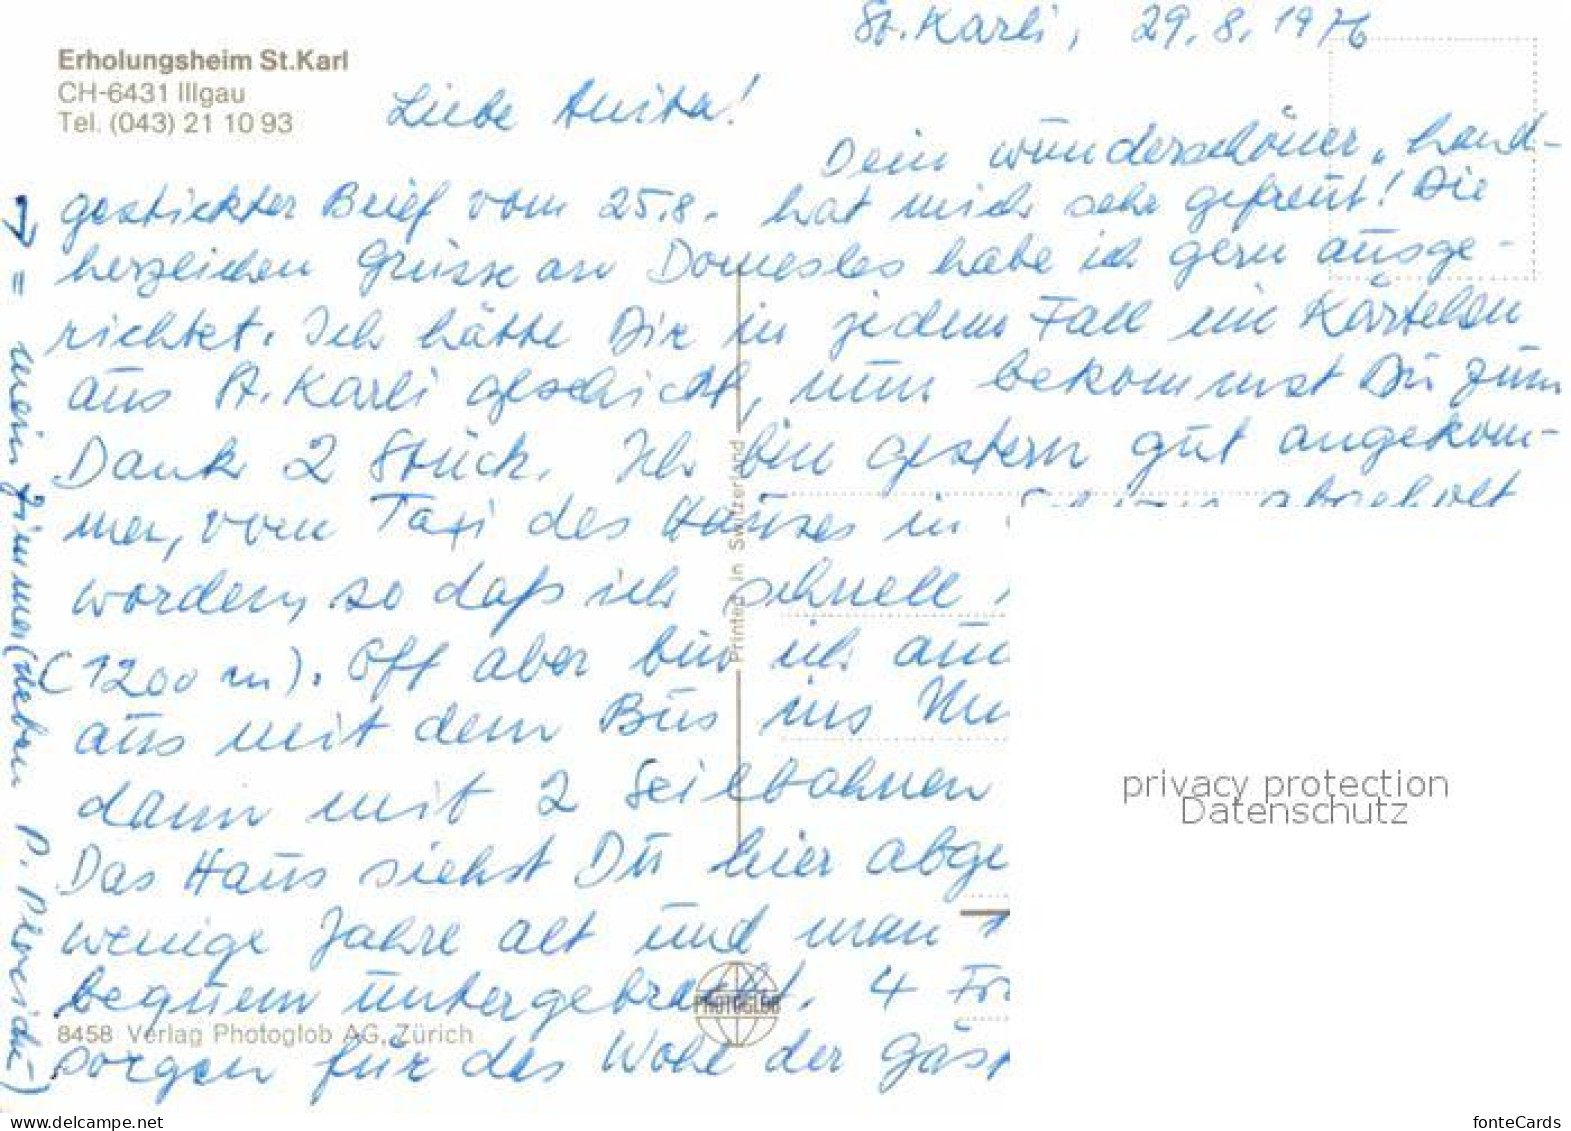 St. Karli, 29. 8. 1976
Erholungsheim St.Karl
CH-6431 Illgau
Tel. (043) 21 10 93
Liebe Anita!
Dein wunderschöner, „hand-
gestickter Brief vom 25.8. hat mich sehr gefreut! Die
herzlichen Grüsse an Domesles habe ich gern ausge-
richtet. Ich hätte Dir in jedem Fall ein Kärtchen
aus St. Karli geschickt, nun bekommst Du zum
Dank 2 Stück. Ich bin gestern gut angekom-
men, vom Taxi des Hauses in abgeholt
worden, so daß ich schnell
(1200 m). Oft aber bin ich
aus mit dem Bus ins
dann mit 2 Seilbahnen
Das Haus siehst Du hier abge
wenige Jahre alt und man
bequem untergebracht. 4
sorgen für das Wohl der
→ = mein Zimmer (neben P.
Printed in Switzerland
PHOTOGLOB
8458 Verlag Photoglob AG, Zürich
privacy protection
Datenschutz
www.delcampe.net
fonteCards